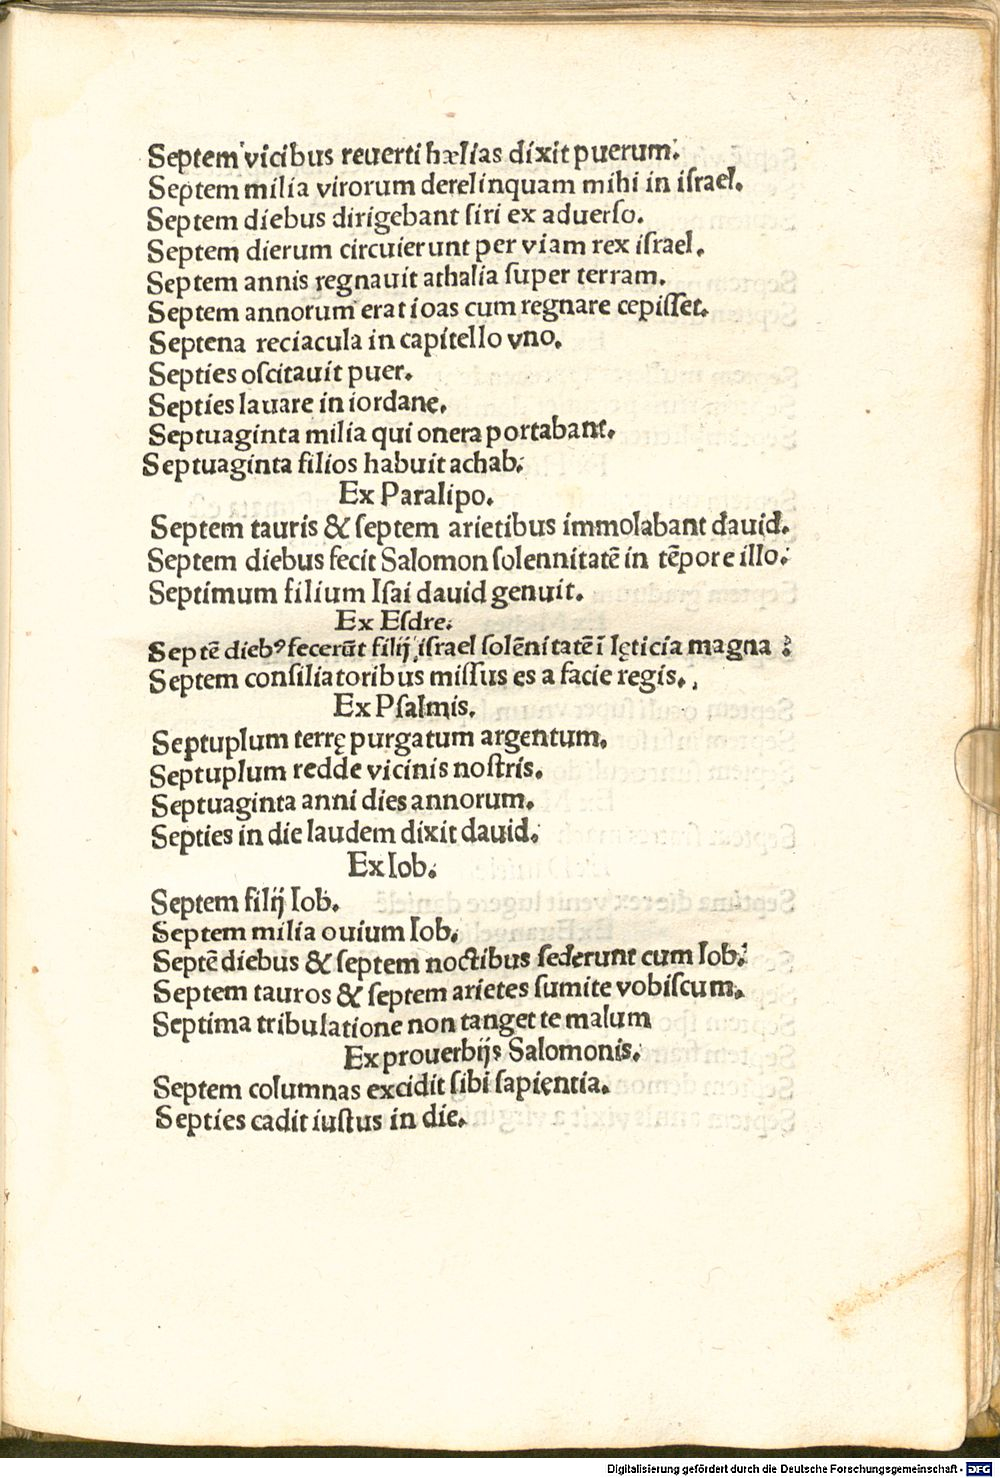 Septem vicibus reuerti hælias dixit puerum.
Septem milia virorum derelinquam mihi in iſrael.
Septem diebus dirigebant ſiri ex aduerſo.
Septem dierum circuierunt per viam rex iſrael.
Septem annis regnauit athalia ſuper terram.
Septem annorum erat ioas cum regnare cepiſſet.
Septena reciacula in capitello vno.
Septies oſcitauit puer.
Septies lauare in iordane.
Septuaginta milia qui onera portabant.
Septuaginta filios habuit achab.
Ex Paralipo.
Septem tauris & ſeptem arietibus immolabant dauid.
Septem diebus fecit Salomon ſolennitatē in tēpore illo.
Septimum filium Iſai dauid genuit.
Ex Eſdre.
Septē diebꝰ fecerūt filij iſrael ſolēnitatē ī lęticia magna :
Septem conſiliatoribus miſſus es a facie regis.
Ex Pſalmis.
Septuplum terrę purgatum argentum.
Septuplum redde vicinis noſtris.
Septuaginta anni dies annorum.
Septies in die laudem dixit dauid.
Ex Iob.
Septem filij Iob.
Septem milia ouium Iob.
Septē diebus & ſeptem noctibus ſederunt cum Iob.
Septem tauros & ſeptem arietes ſumite vobiſcum.
Septima tribulatione non tanget te malum
Ex prouerbijs Salomonis.
Septem columnas excidit ſibi ſapientia.
Septies cadit iuſtus in die.
Digitalisierung gefördert durch die Deutsche Forschungsgemeinschaft - DFG